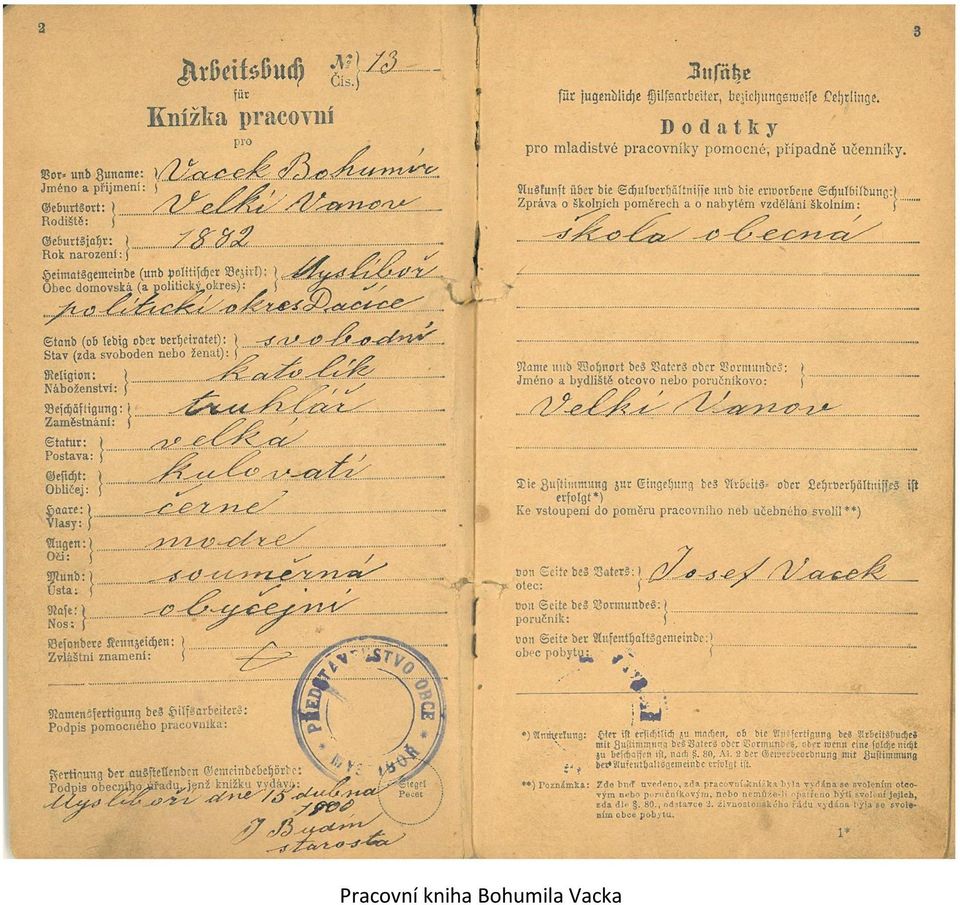 2
Arbeitsbuch
für
Knížka pracovní
pro
№ Čís. } 13
Vor- und Zuname: Jméno a příjmení: } Vacek Bohumír
Geburtsort: Rodiště: } Velki Vanov
Geburtsjahr: Rok narození: } 1882
Heimatsgemeinde (und politischer Bezirk): Obec domovská (a politický okres): } Myslíboř
politicki okres Dačice
Stand (ob ledig oder verheiratet): Stav (zda svoboden nebo ženat): } svobodní
Religion: Náboženství: } katolík
Beschäftigung: Zaměstnání: } truhlář
Statur: Postava: } velká
Gesicht: Obličej: } kulovatí
Haare: Vlasy: } černé
Augen: Oči: } modré
Mund: Ústa: } souměrná
Nase: Nos: } obyčejní
Besondere Kennzeichen: Zvláštní znamení: }
PŘEDSTAVENSTVO OBCE
Namensfertigung des Hilfsarbeiters:
Podpis pomocného pracovníka:
Fertigung der ausstellenden Gemeindebehörde:
Podpis obecního úřadu, jenž knížku vydává:
Siegel
Pečeť
Myslíboři dne 15 dubna
1900
J Budín
starosta
3
Zusätze
für jugendliche Hilfsarbeiter, beziehungsweise Lehrlinge.
Dodatky
pro mladistvé pracovníky pomocné, případně učenníky.
Auskunft über die Schulverhältnisse und die erworbene Schulbildung:
Zpráva o školních poměrech a o nabytém vzdělání školním:
škola obecná
Name und Wohnort des Vaters oder Vormundes:
Jméno a bydliště otcovo nebo poručníkovo:
Velki Vanov
Die Zustimmung zur Eingehung des Arbeits- oder Lehrverhältnisses ist
erfolgt*)
Ke vstoupení do poměru pracovního neb učebného svolil**)
von Seite des Vaters: otec: } Josef Vacek
von Seite des Vormundes:
poručník:
von Seite der Aufenthaltsgemeinde:
obec pobytu:
*) Anmerkung: Hier ist ersichtlich zu machen, ob die Ausfertigung des Arbeitsbuches
mit Zustimmung des Vaters oder Vormundes, oder wenn eine solche nicht
zu beschaffen ist, nach §. 80, Al. 2 der Gewerbeordnung mit Zustimmung
der Aufenthaltsgemeinde erfolgt ist.
**) Poznámka: Zde buď uvedeno, zda pracovní knížka byla vydána se svolením otco-
vým nebo poručníkovým, nebo nemůže-li opatřeno býti svolení jejich,
zda dle §. 80., odstavce 2. živnostenského řádu vydána byla se svole-
ním obce pobytu.
1*
Pracovní kniha Bohumila Vacka